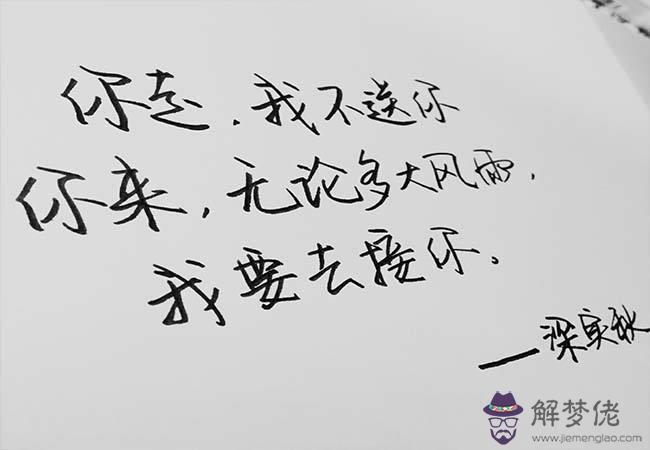 你走，我不送你
你来，无论多大风雨，
我要去接你。
——深实秋
解梦佬
www.jiemenglao.com